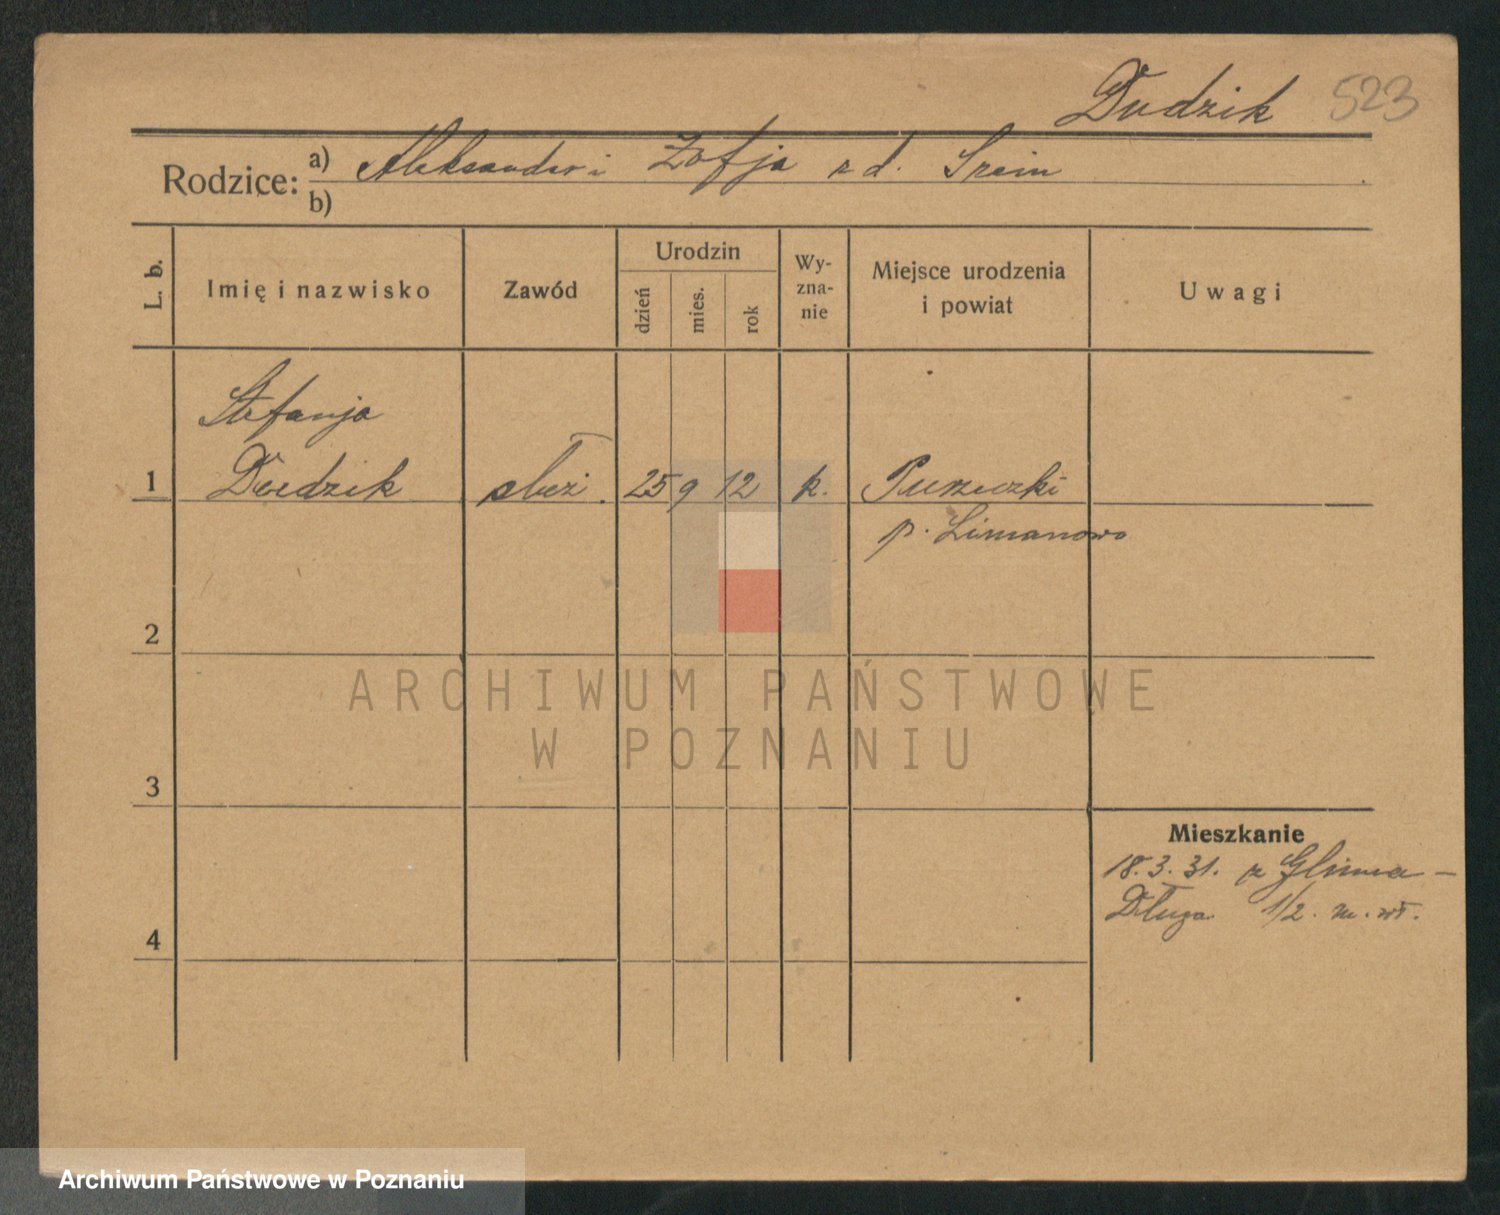 Dudzik 523
Rodzice: a) Aleksander i Zofja z d.
b)
L. b.
Imię i nazwisko
Zawód
Urodzin
dzień
mies.
rok
Wy-
zna-
nie
Miejsce urodzenia
i powiat
Uwagi
Stefanja
1 Dudzik służ. 25 9 12 k.
p. Limanowo
2
ARCHIWUM PAŃSTWOWE
W POZNANIU
3
Mieszkanie
18.3.31. z Glinna -
Długa 1/2. m. wł.
4
Archiwum Państwowe w Poznaniu